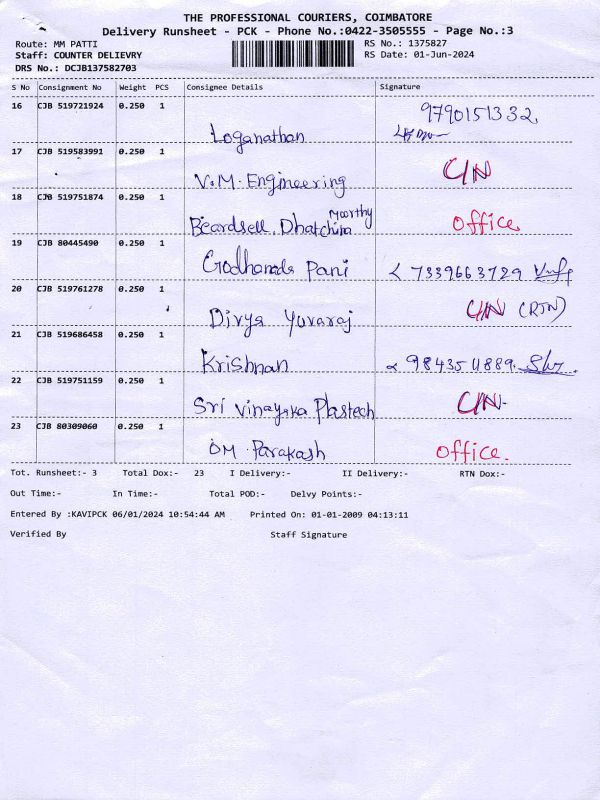 THE PROFESSIONAL COURIERS, COIMBATORE
Delivery Runsheet - PCK - Phone No.:0422-3505555 - Page No.:3
Route: MM PATTI
RS No.: 1375827
Staff: COUNTER DELIEVRY
RS Date: 01-Jun-2024
DRS No.: DCJB137582703
S No Consignment No Weight PCS Consignee Details Signature
16 CJB 519721924 0.250 1 Loganathan 9790151332
17 CJB 519583991 0.250 1 V.M. Engineering C/N
18 CJB 519751874 0.250 1 Beardsell. Dhatchina Moorthy Office
19 CJB 80445490 0.250 1 Godhanda Pani 7339663729
20 CJB 519761278 0.250 1 Divya Yuvaraj C/N (RTN)
21 CJB 519686458 0.250 1 Krishnan
22 CJB 519751159 0.250 1 Sri Vinayaka Plastech C/N.
23 CJB 80309060 0.250 1 OM. Parakash Office.
Tot. Runsheet:- 3 Total Dox:- 23 I Delivery:- II Delivery:- RTN Dox:-
Out Time:- In Time:- Total POD:- Delvy Points:-
Entered By :KAVIPCK 06/01/2024 10:54:44 AM Printed On: 01-01-2009 04:13:11
Verified By Staff Signature